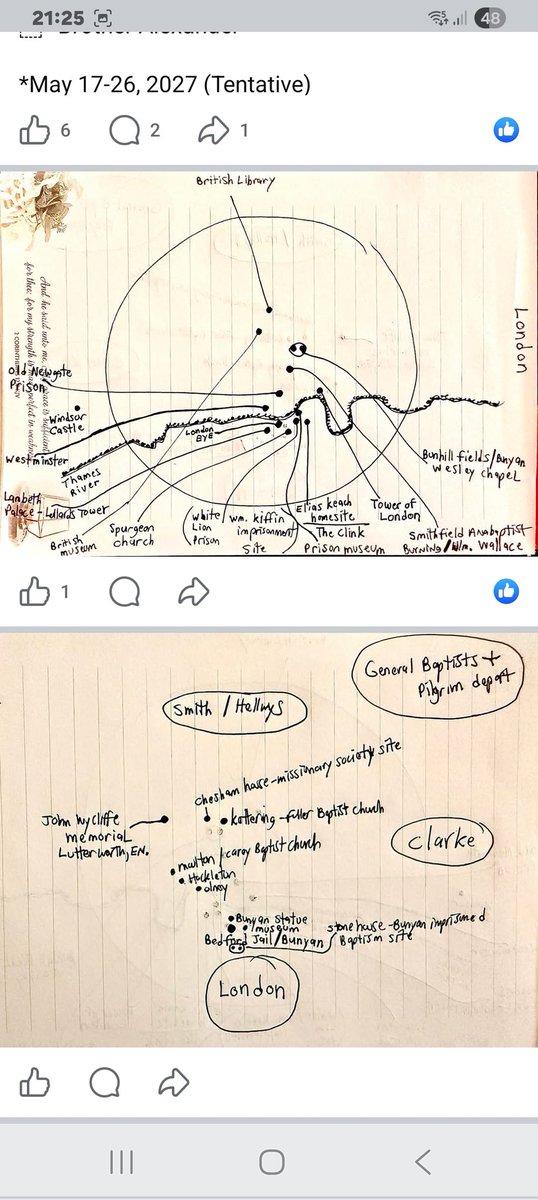 21:25
48
Brother Alexander
*May 17-26, 2027 (Tentative)
6
2
1
British Library
London
And he said unto me,
grace is sufficient
for thee: for my strength is
perfect in weakness
Old Newgate
Prison
Windsor
Castle
Westminster
Thames
River
London
EYE
Lambeth
Palace - Lollards Tower
British
museum
Spurgeon
church
White
Lion
Prison
Wm. Kiffin
imprisonment
Site
Elias Keach
homesite
The Clink
Prison museum
Tower of
London
Bunhill fields/Bunyan
Wesley chapel
Smithfield Anabaptist
Burning/Wm. Wallace
1
General Baptists +
Pilgrim depart
Smith / Hellwys
chesham hasse-missionary society site
kettering - fuller Baptist church
John Wycliffe
memorial
Lutterworth, EN.
Clarke
moulton / carey Baptist church
Hackleton
olney
Bunyan Statue
museum
Bedford Jail/Bunyan
stone house - Bunyan imprisoned
Baptism site
London